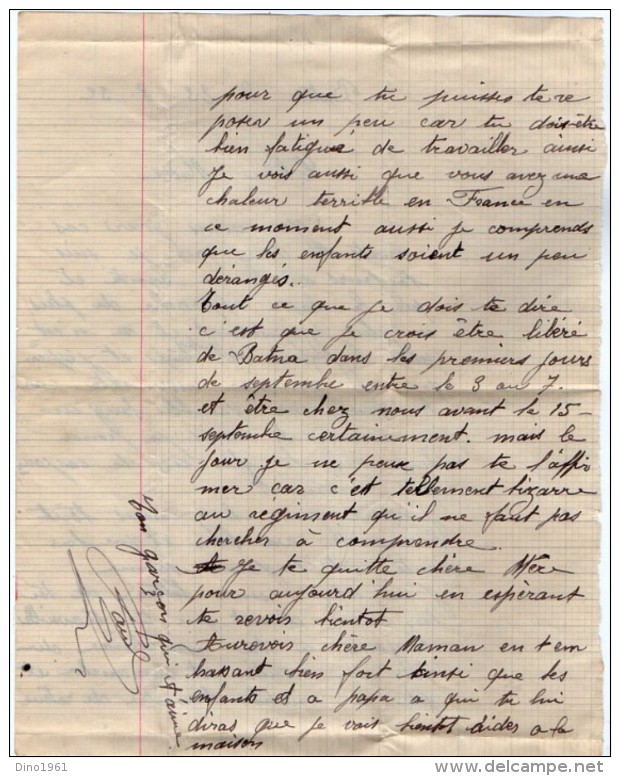 pour que tu puisses te re
poser un peu car tu dois être
bien fatigué de travailler ainsi
Je vois aussi que vous avez une
chaleur terrible en France en
ce moment aussi je comprends
que les enfants soient un peu
dérangés.
Tout ce que je dois te dire
c'est que je crois être libéré
de Batna dans les premiers jours
de septembre entre le 3 au 7.
et être chez nous avant le 15
septembre certainement. mais le
jour je ne peux pas te l'affir
mer car c'est tellement bizarre
au regiment qu'il ne faut pas
chercher à comprendre.
Je te quitte chère Mère
pour aujourd'hui en espérant
te revois bientot
Aurevois chère Maman en t'em
bassant bien fort ainsi que les
enfants et a papa a qui tu lui
diras que je vais bientot aider a la
maison
Ton garçon qui t'aime
Dino1961
delcampe.net